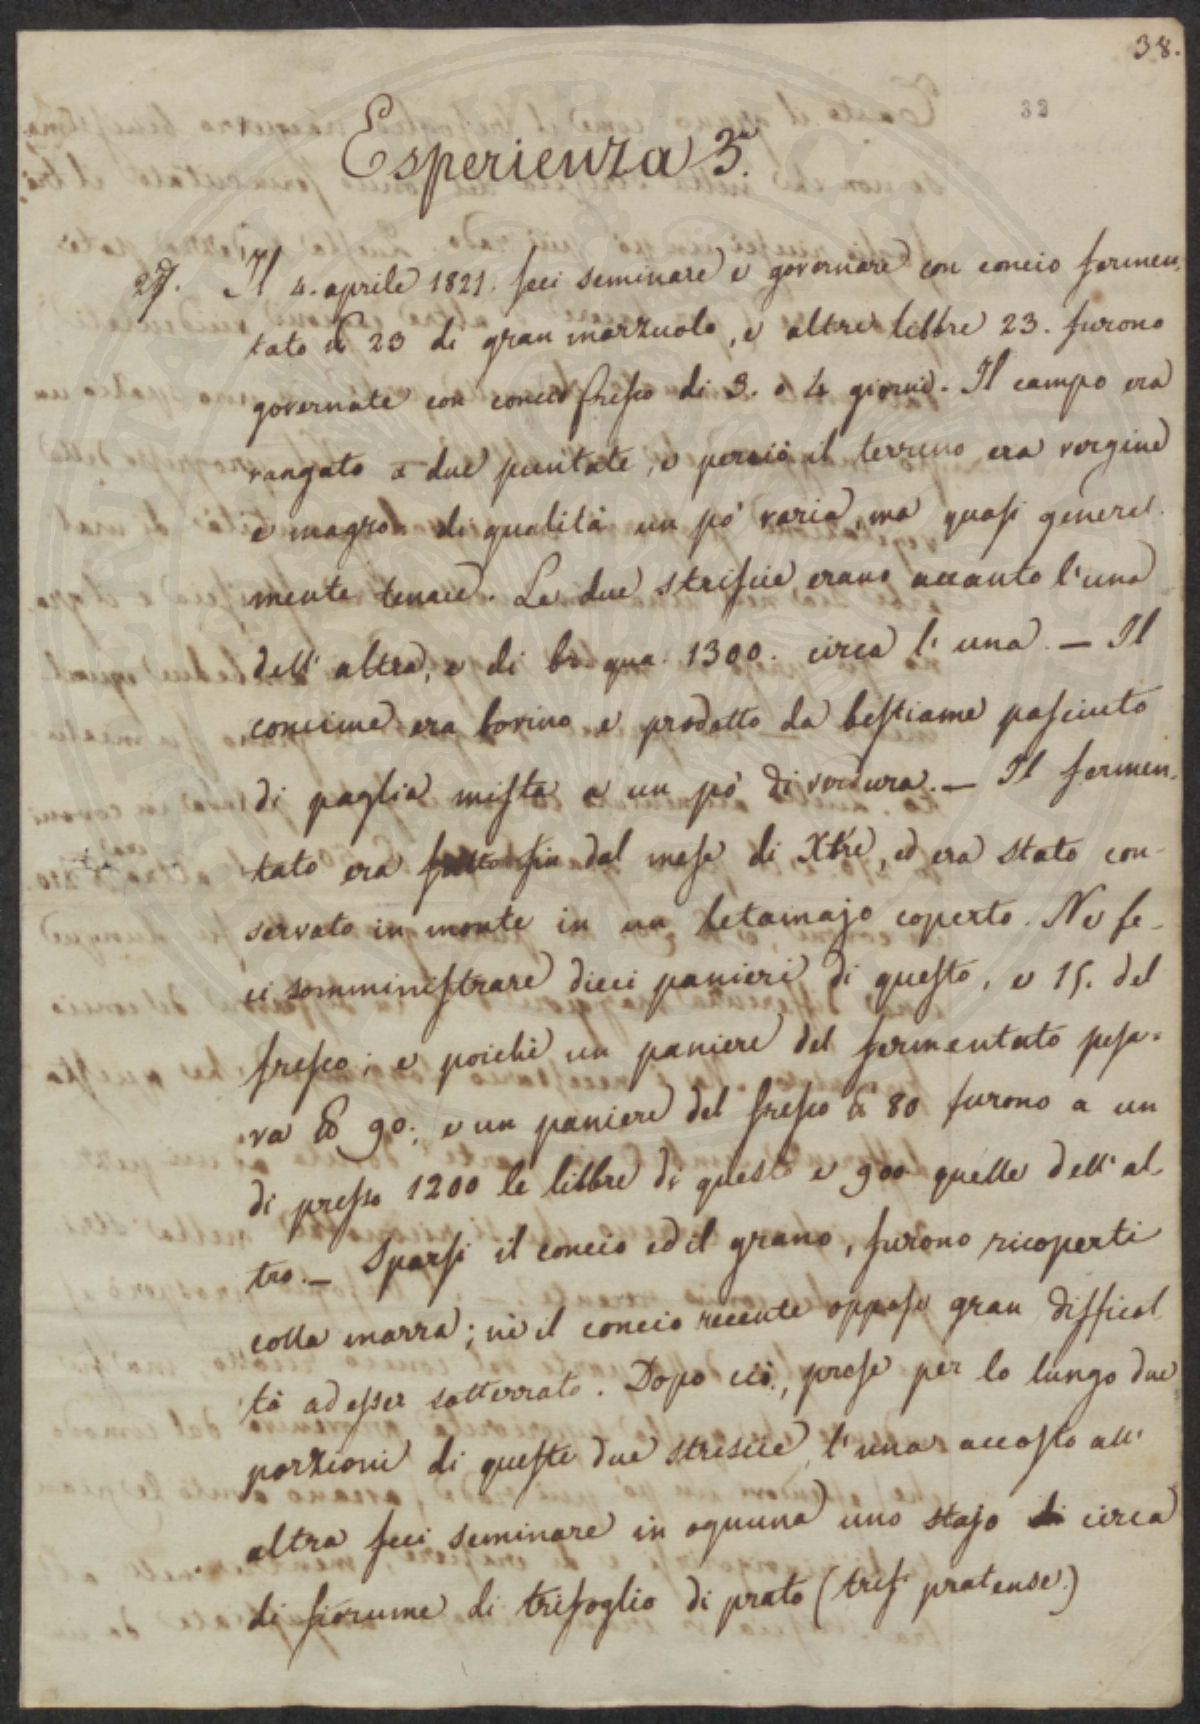 38.
33
Esperienza 3.a
27. Il 4. aprile 1821. feci seminare e governare con concio fermen-
tato ℔ 23 di gran marzuolo, e altre libbre 23. furono
governate con concio fresco di 3. o 4 giorni. Il campo era
vangato a due puntate, e perciò il terreno era vergine
e magro di qualità un pò varia, ma quasi general-
mente tenace. Le due striscie erano accanto l'una
dell'altra, e di br. qua. 1300. circa l'una. — Il
concime era bovino e prodotto da bestiame pasciuto
di paglia mista a un pò di verdura. — Il fermen-
tato era fatto fin dal mese di Xbre, ed era stato con-
servato in monte in un letamajo coperto. Ne fe-
ci somministrare dieci panieri di questo, e 15. del
fresco; e poichè un paniere del fermentato pesa-
va ℔ 90., e un paniere del fresco ℔ 80 furono a un
di presso 1200 le libbre di questo e 900 quelle dell'al-
tro. — Sparsi il concio ed il grano, furono ricoperti
colla marra; nè il concio recente oppose gran difficol-
tà ad esser sotterrato. Dopo ciò, prese per lo lungo due
porzioni di queste due striscie, l'una accosto all'
altra feci seminare in ognuna uno stajo di circa
di fiorume di trifoglio di prato (trif. pratense.)